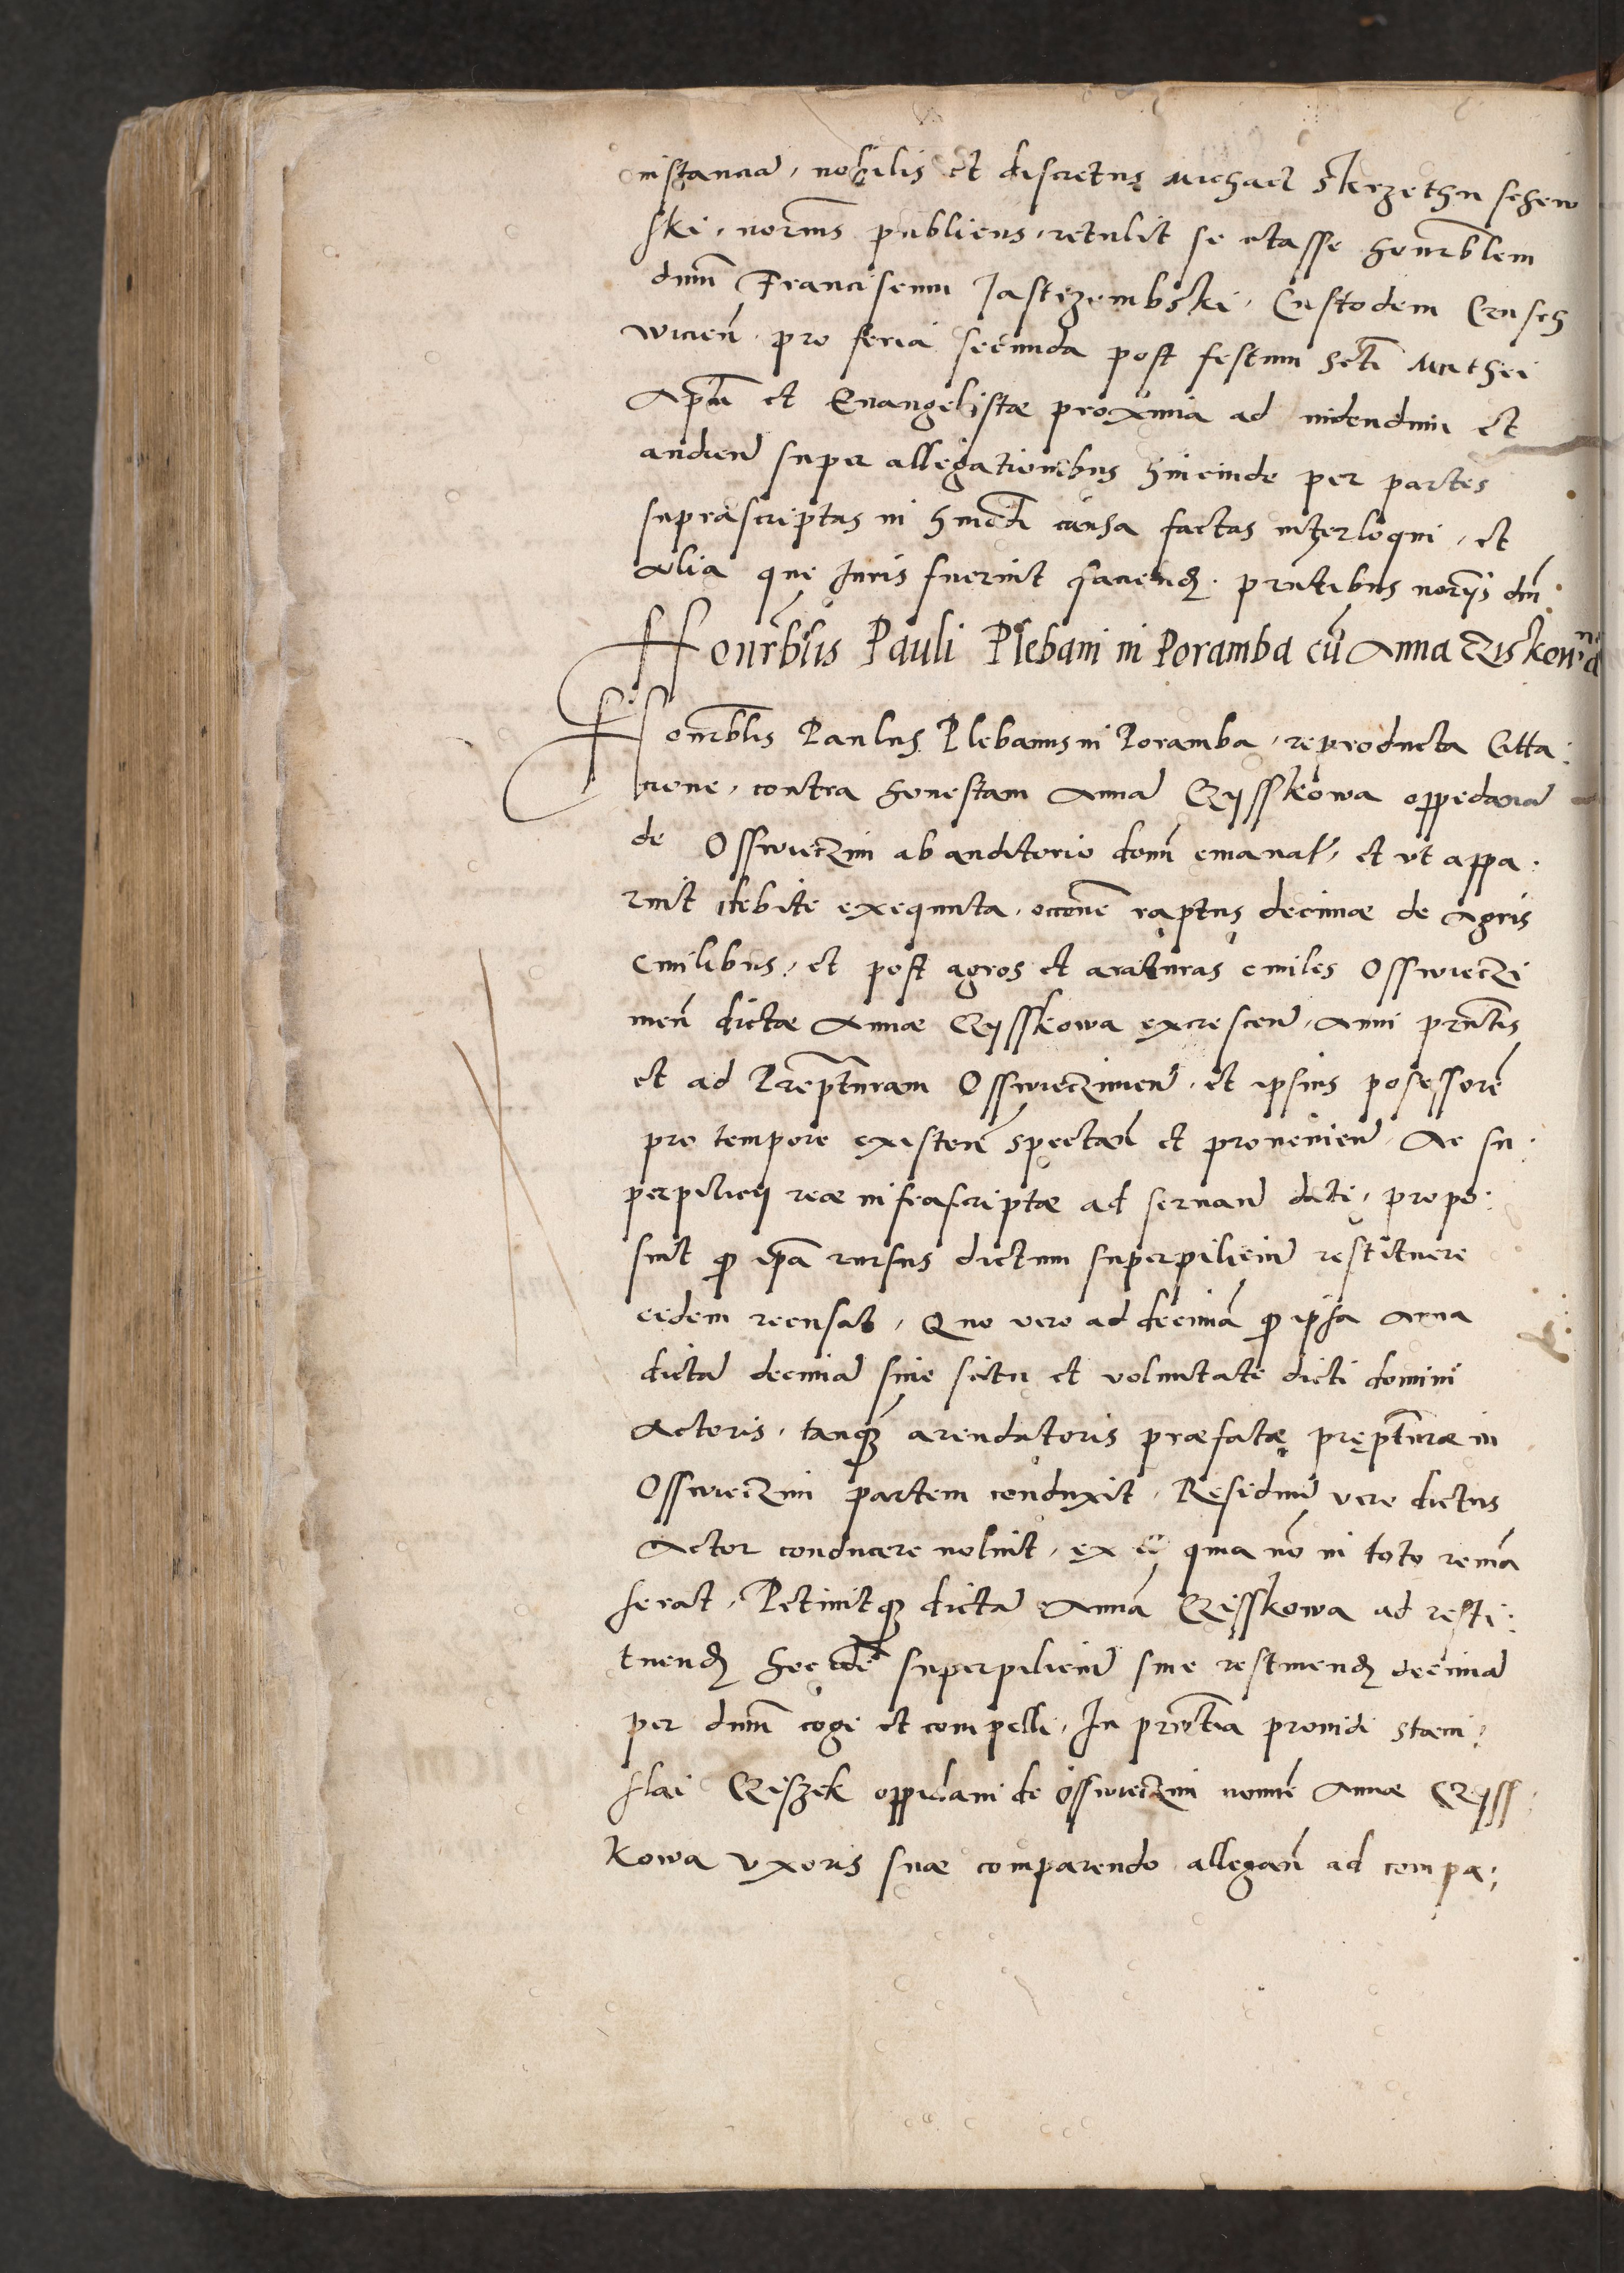 instanciã, nobilis et discretus Michael Skrzethu schew
ski, noriꝰ publicus, retulit se citasse honorblem
dnum Franciscum Jastrzembski, Custodem Crusch
wicieñ, pro feria secunda post festum Scti Mathei
Apłi et Euangelistæ proxima ad uidendum et
audieñ super allegationibus hincinde per partes
suprascriptas in hmodi causa factas interloqui, et
alia que juris fuerint faciendꝫ. Pręntibus noriis dñi
Honorblis Pauli Plebani in Poramba cũ Anna Cziskowna
Honorblis Paulus Plebanus in Poramba, reproducta Citta:
cione, contra honestam Annã Czÿsskowa oppidanã
de Osswieczim ab auditorio domĩ emanať, et ut appa:
ruit debite exequuta, occõne raptus decimæ de agris
emilibus, et post agros et araturas emiles Osswieczi
meñ dictæ Annæ Czÿsskowa excresceñ, Anni pręntis
et ad Pręptturam Osswieczimeñ, et ipsius posessorẽ
pro tempore existeñ spectañ et prouenieñ, Ac su:
perpilicij reæ infrascriptæ ad seruanď dati, propo:
suit ꝙ ipsa rursus dictum superpiliciũ restituere
eidem recusat, Quo vero ad decimã ꝙ ipsa Anna
dictã decimã sine scitu et voluntate dicti domini
Actoris, tanqꝫ arendatoris præfatæ pręptturæ in
Osswieczim partem conduxit, Residuũ vero dictus
Actor conducere noluit, ex eo quia nõ in toto remã
serat, Petiuitqꝫ dictã Annã Czÿsskowa ad resti:
tuendꝫ hoc idẽ superpiliciũ siue restituendꝫ decimã
per dnum cogi et compelli, In pręntia prouidi Stani:
slai Cziszek oppidani de Osswieczim nomĩe Annæ Czÿss
kowa vxoris suæ comparendo allegañ ad compa: